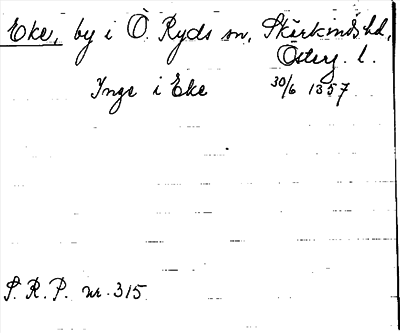 Eke, by i Ö. Ryds sn, Skärkinds hd,
Österg. l.
Inge i Eke 30/6 1357
S. R. P. nr. 315